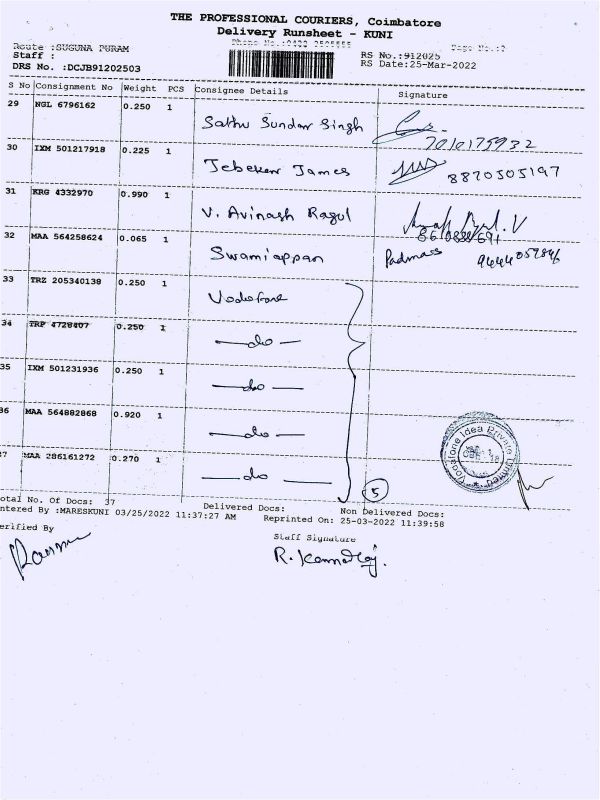 THE PROFESSIONAL COURIERS, Coimbatore
Delivery Runsheet - KUNI
Route :SUGUNA PURAM
Staff :
DRS No. :DCJB91202503
RS No.:912025
RS Date:25-Mar-2022
S No Consignment No Weight PCS Consignee Details Signature
29 NGL 6796162 0.250 1 Sathu Sundar Singh 7010175932
30 IXM 501217918 0.225 1 Jebeken James 8870505197
31 KRG 4332970 0.990 1 V. Avinash Ragul
32 MAA 564258624 0.065 1 Swamiappan Padmas
33 TRZ 205340138 0.250 1 Vodafone
34 TRP 4728407 0.250 1 — do —
35 IXM 501231936 0.250 1 — do —
36 MAA 564882868 0.920 1 — do —
37 MAA 286161272 0.270 1 — do —
5
Vodafone Idea Private Limited
Total No. Of Docs: 37 Delivered Docs: Non Delivered Docs:
Entered By :MARESKUNI 03/25/2022 11:37:27 AM Reprinted On: 25-03-2022 11:39:58
Verified By
Staff Signature
R. Kannaraj.